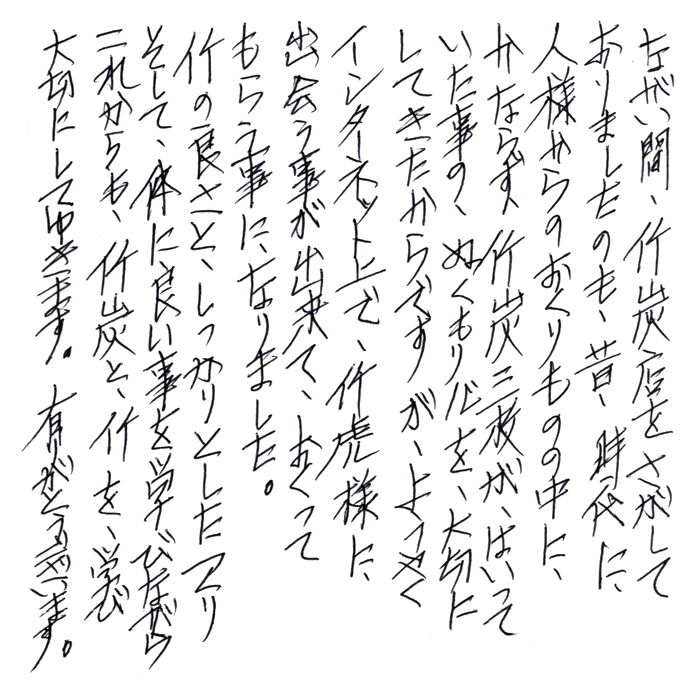 ながい間、竹炭店をさがして
おりましたのも、昔、時代に、
人様からのおくりものの中に、
かならず、竹炭三枚が、はいって
いた事の、ぬくもり心を、大切に
してきたからですが、ようやく
インターネット上で、竹虎様に、
出会う事が出来て、おくって
もらう事に、なりました。
竹の良さと、しっかりとした
そして、体に良い事を学びながら
これからも、竹炭と、竹を、学び
大切にしてゆきます。有りがとうございます。